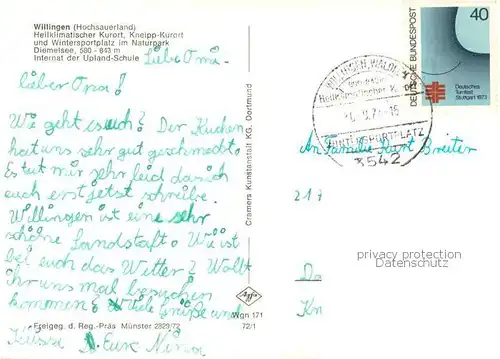 Willingen (Hochsauerland)
Heilklimatischer Kurort, Kneipp-Kurort
und Wintersportplatz im Naturpark
Diemelsee, 580 - 843 m
Internat der Upland-Schule
Liebe Omi -
lieber Opa!
Wie geht es euch? Der Kuchen
hat uns sehr gut geschmeckt.
Es tut mir sehr leid das ich
euch erst jetst schreibe.
Willingen ist eine sehr
schöne Landstaft. Wie ist
bei euch das Witter? Wollt
ihr uns mal besuchen
kommen? Viele Grüße und
Küsse Eure Nina
Freigeg. d. Reg.-Präs Münster 2829/72
72/1
Wgn 171
Agfa
Cramers Kunstanstalt KG, Dortmund
WILLINGEN, WALDECK
Heilklimatischer
WINTERSPORTPLATZ
3542
40
DEUTSCHE BUNDESPOST
Deutsches
Turnfest
Stuttgart 1973
An Familie Kurt Breiter
217
privacy protection
Datenschutz